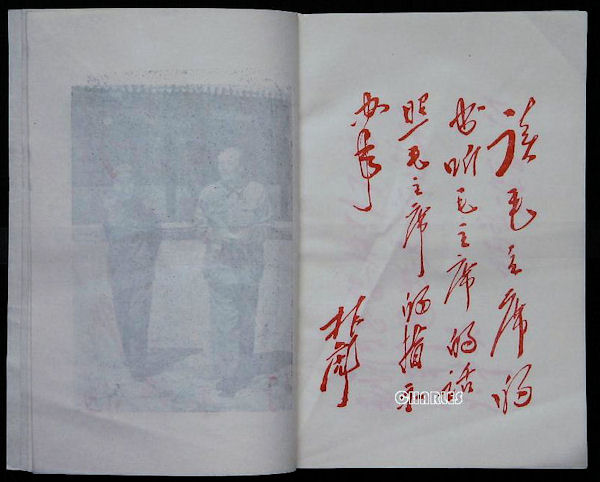 读毛主席的
书听毛主席的话
照毛主席的指示
办事
林彪
CHARLES